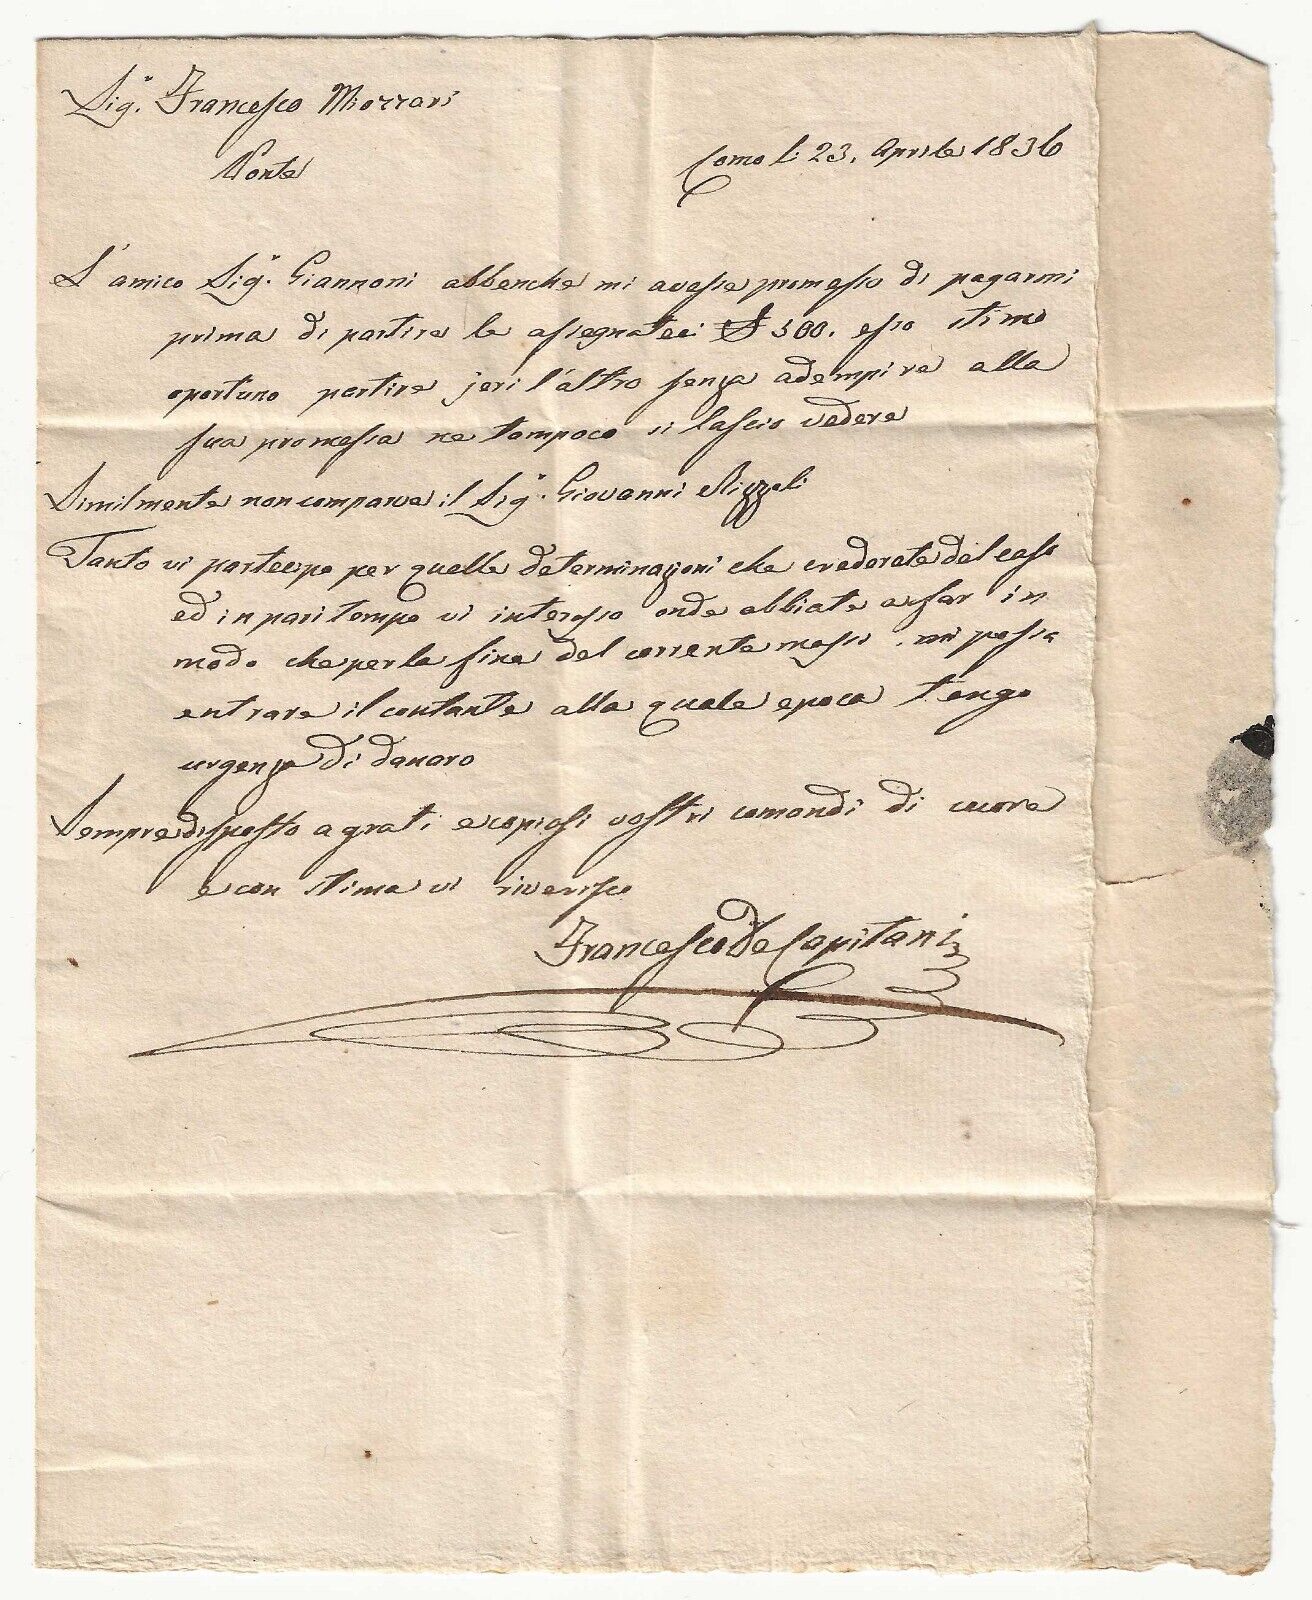 Sig.r Francesco Miozzari
Ponte
Como li 23. Aprile 1836
L'amico Sig.r Giannoni abbenche mi avesse promesso di pagarmi
prima di partire le assegnateci £ 500. esso stimo
oportuno partire jeri l'altro senza adempire alla
sua promessa ne tampoco si lascio vedere
Similmente non comparve il Sig.r Giovanni Rizzoli
Tanto vi partecipo per quelle determinazioni che crederete del caso
ed in pari tempo vi interesso onde abbiate a far in
modo che per la fine del corrente mese mi possa
entrare il contante alla quale epoca tengo
urgenza di danaro
Sempre disposto a grati e copiosi vostri comandi di cuore
e con stima vi riverisco
Francesco De Capitani